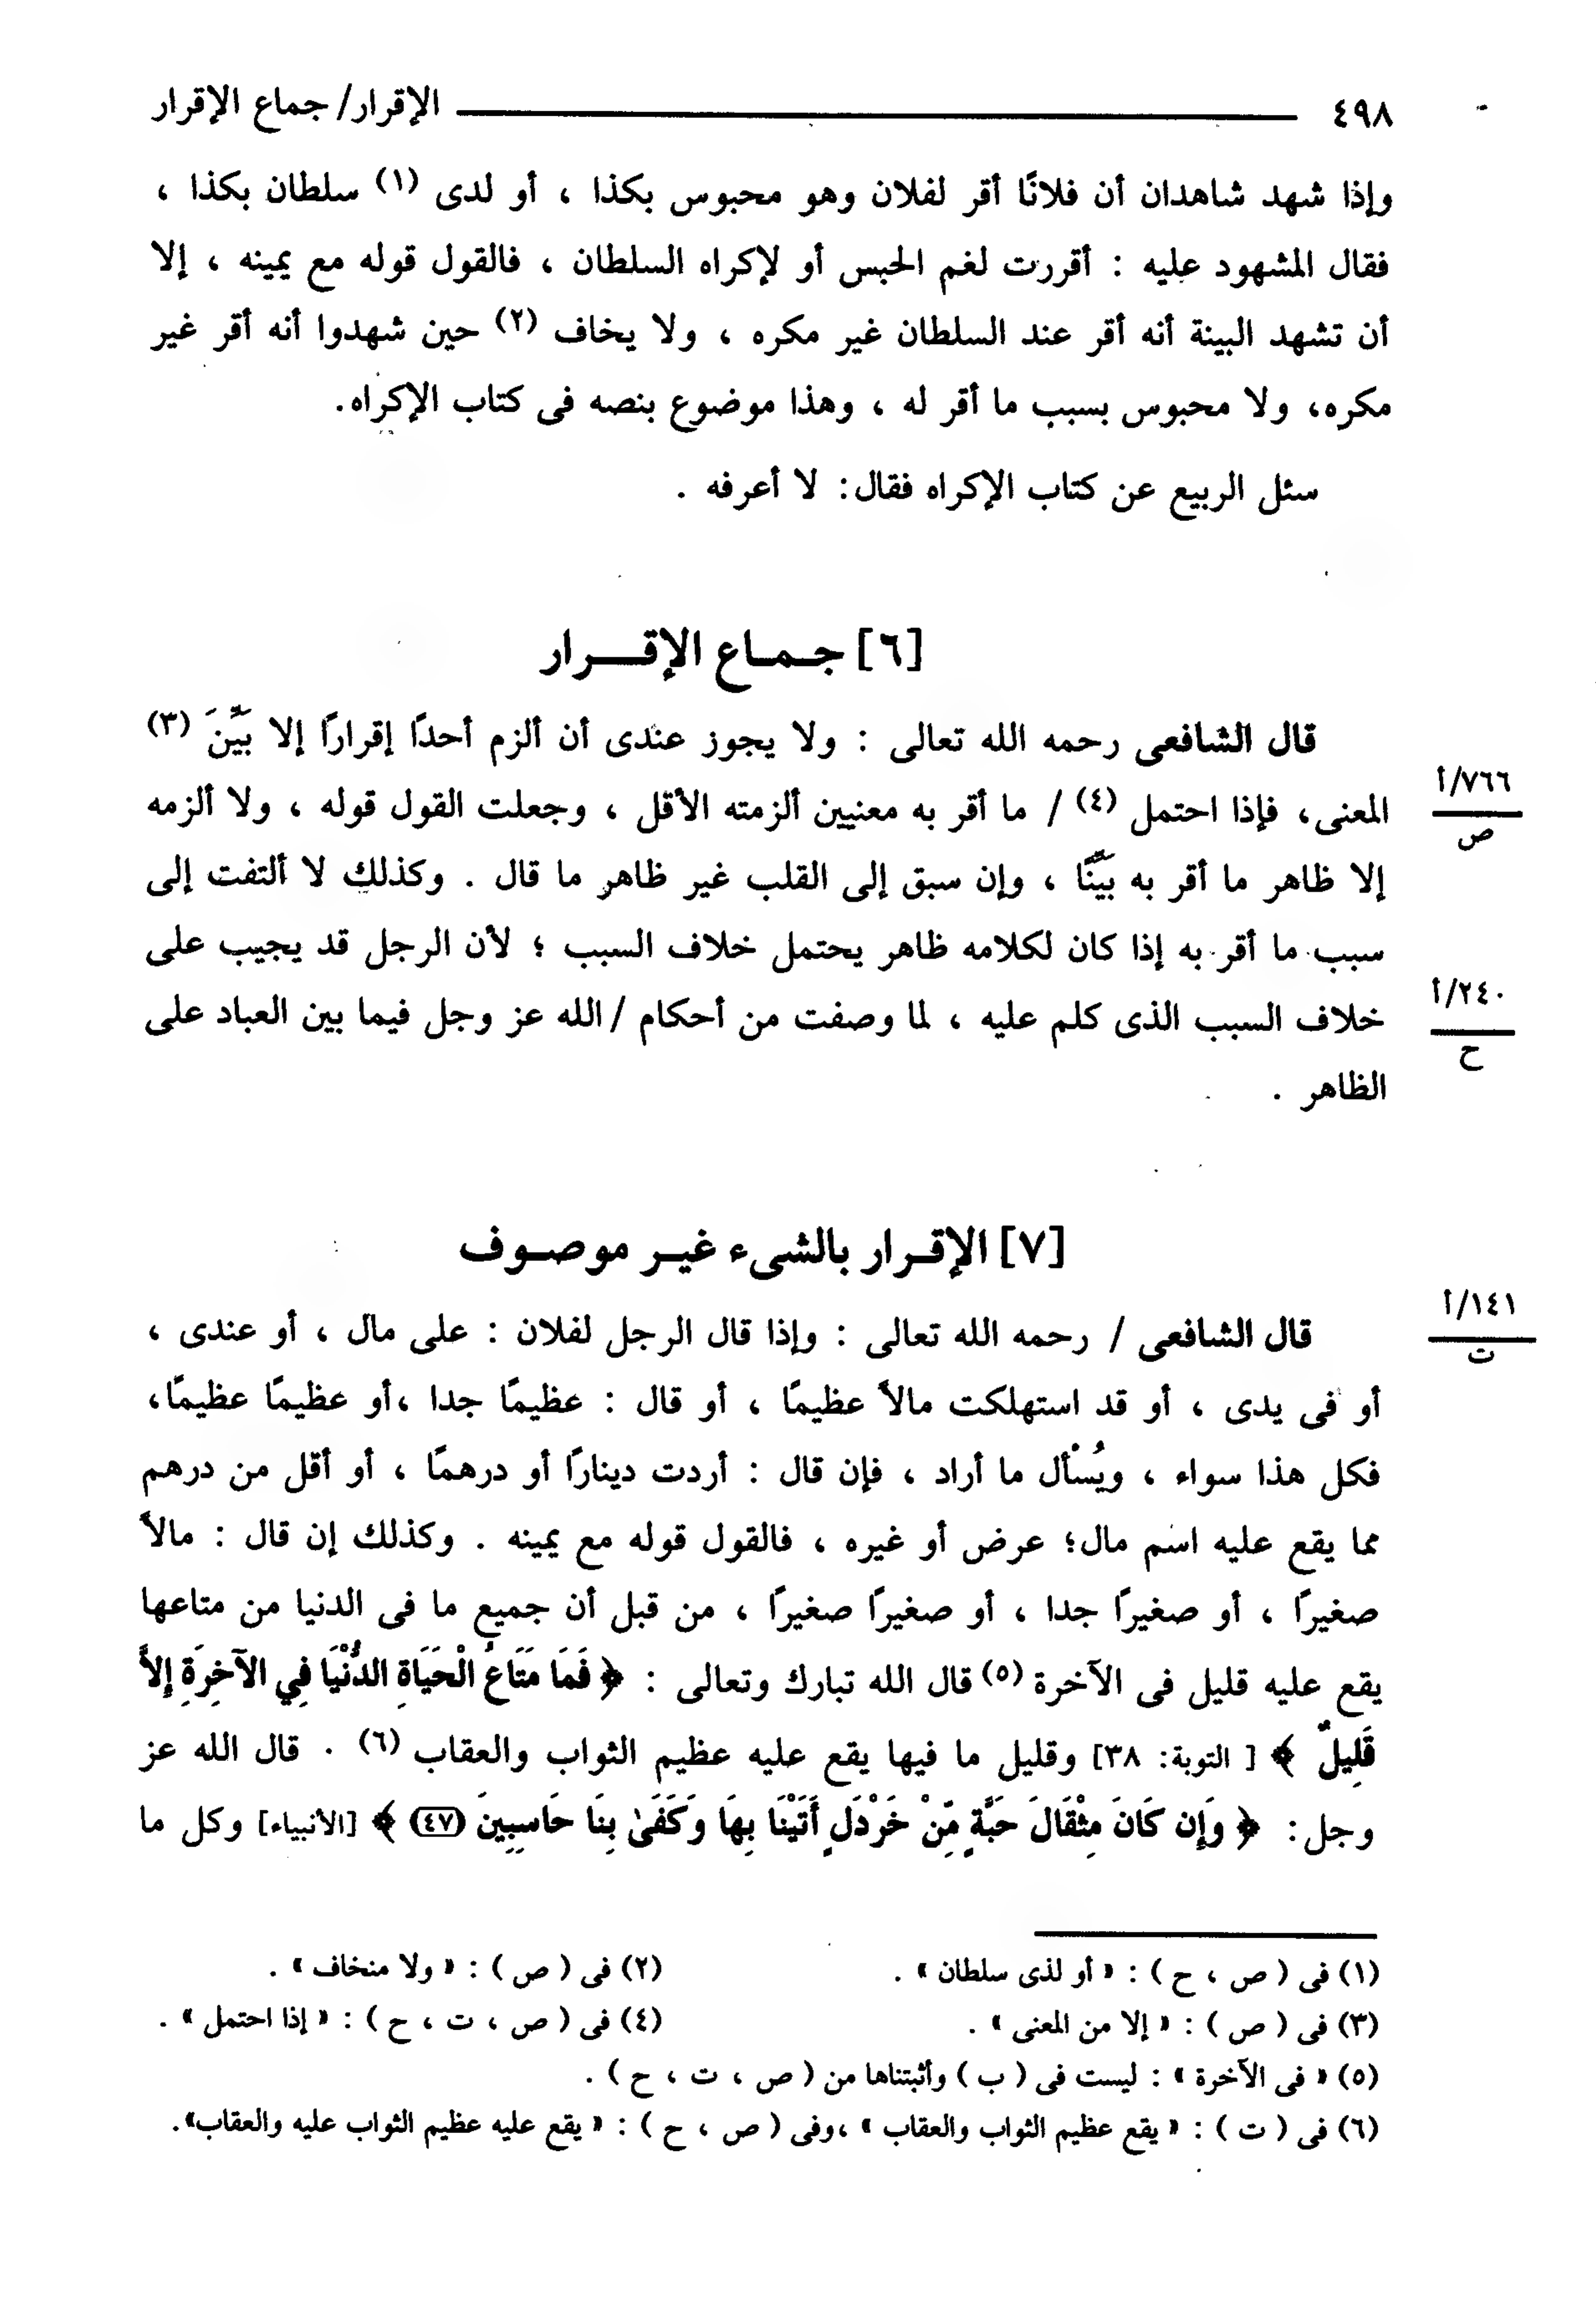 ٤٩٨ ــــــــــــــــــــ الإقرار/ جماع الإقرار
وإذا شهد شاهدان أن فلانًا أقر لفلان وهو محبوس بكذا ، أو لدى (١) سلطان بكذا ،
فقال المشهود عليه : أقررت لغم الحبس أو لإكراه السلطان ، فالقول قوله مع يمينه ، إلا
أن تشهد البينة أنه أقر عند السلطان غير مكره ، ولا يخاف (٢) حين شهدوا أنه أقر غير
مكره، ولا محبوس بسبب ما أقر له ، وهذا موضوع بنصه فى كتاب الإكراه.
سئل الربيع عن كتاب الإكراه فقال: لا أعرفه .
[٦] جـمـاع الإقــــرار
قال الشافعى رحمه الله تعالى : ولا يجوز عندى أن ألزم أحدًا إقرارًا إلا بَيِّنَ (٣)
٧٦٦/أ
المعنى، فإذا احتمل (٤) / ما أقر به معنيين ألزمته الأقل ، وجعلت القول قوله ، ولا ألزمه
ص
إلا ظاهر ما أقر به بَيِّنًا ، وإن سبق إلى القلب غير ظاهر ما قال . وكذلك لا ألتفت إلى
سبب ما أقر به إذا كان لكلامه ظاهر يحتمل خلاف السبب ؛ لأن الرجل قد يجيب على
٢٤٠/أ
خلاف السبب الذى كلم عليه ، لما وصفت من أحكام /الله عز وجل فيما بين العباد على
ح
الظاهر .
[٧] الإقـرار بالشىء غيـر موصـوف
١٤١/أ
قال الشافعى / رحمه الله تعالى : وإذا قال الرجل لفلان : على مال ، أو عندى ،
ت
أو فى يدى ، أو قد استهلكت مالاً عظيمًا ، أو قال : عظيمًا جدا ،أو عظيمًا عظيمًا،
فكل هذا سواء ، ويُسْأل ما أراد ، فإن قال : أردت دينارًا أو درهمًا ، أو أقل من درهم
مما يقع عليه اسم مال؛ عرض أو غيره ، فالقول قوله مع يمينه . وكذلك إن قال : مالاً
صغيرًا ، أو صغيرًا جدا ، أو صغيرًا صغيرًا ، من قبل أن جميع ما فى الدنيا من متاعها
يقع عليه قليل فى الآخرة (٥) قال الله تبارك وتعالى : ﴿ فَمَا مَتَاعُ الْحَيَاةِ الدُّنْيَا فِي الآخِرَةِ إِلاَّ
قَلِيلٌ ﴾ [ التوبة: ٣٨] وقليل ما فيها يقع عليه عظيم الثواب والعقاب (٦) . قال الله عز
وجل: ﴿ وَإِن كَانَ مِثْقَالَ حَبَّةٍ مِّنْ خَرْدَلٍ أَتَيْنَا بِهَا وَكَفَىٰ بِنَا حَاسِبِينَ (٤٧) ﴾ [الأنبياء] وكل ما
(١) فى ( ص ، ح ) : « أو لذى سلطان » . (٢) فى ( ص ) : « ولا منخاف » .
(٣) فى ( ص ) : « إلا من المعنى » . (٤) فى ( ص ، ت ، ح ) : « إذا احتمل » .
(٥) « فى الآخرة » : ليست فى ( ب ) وأثبتناها من ( ص ، ت ، ح ) .
(٦) فى ( ت ) : « يقع عظيم الثواب والعقاب » ،وفى ( ص ، ح ) : « يقع عليه عظيم الثواب عليه والعقاب».